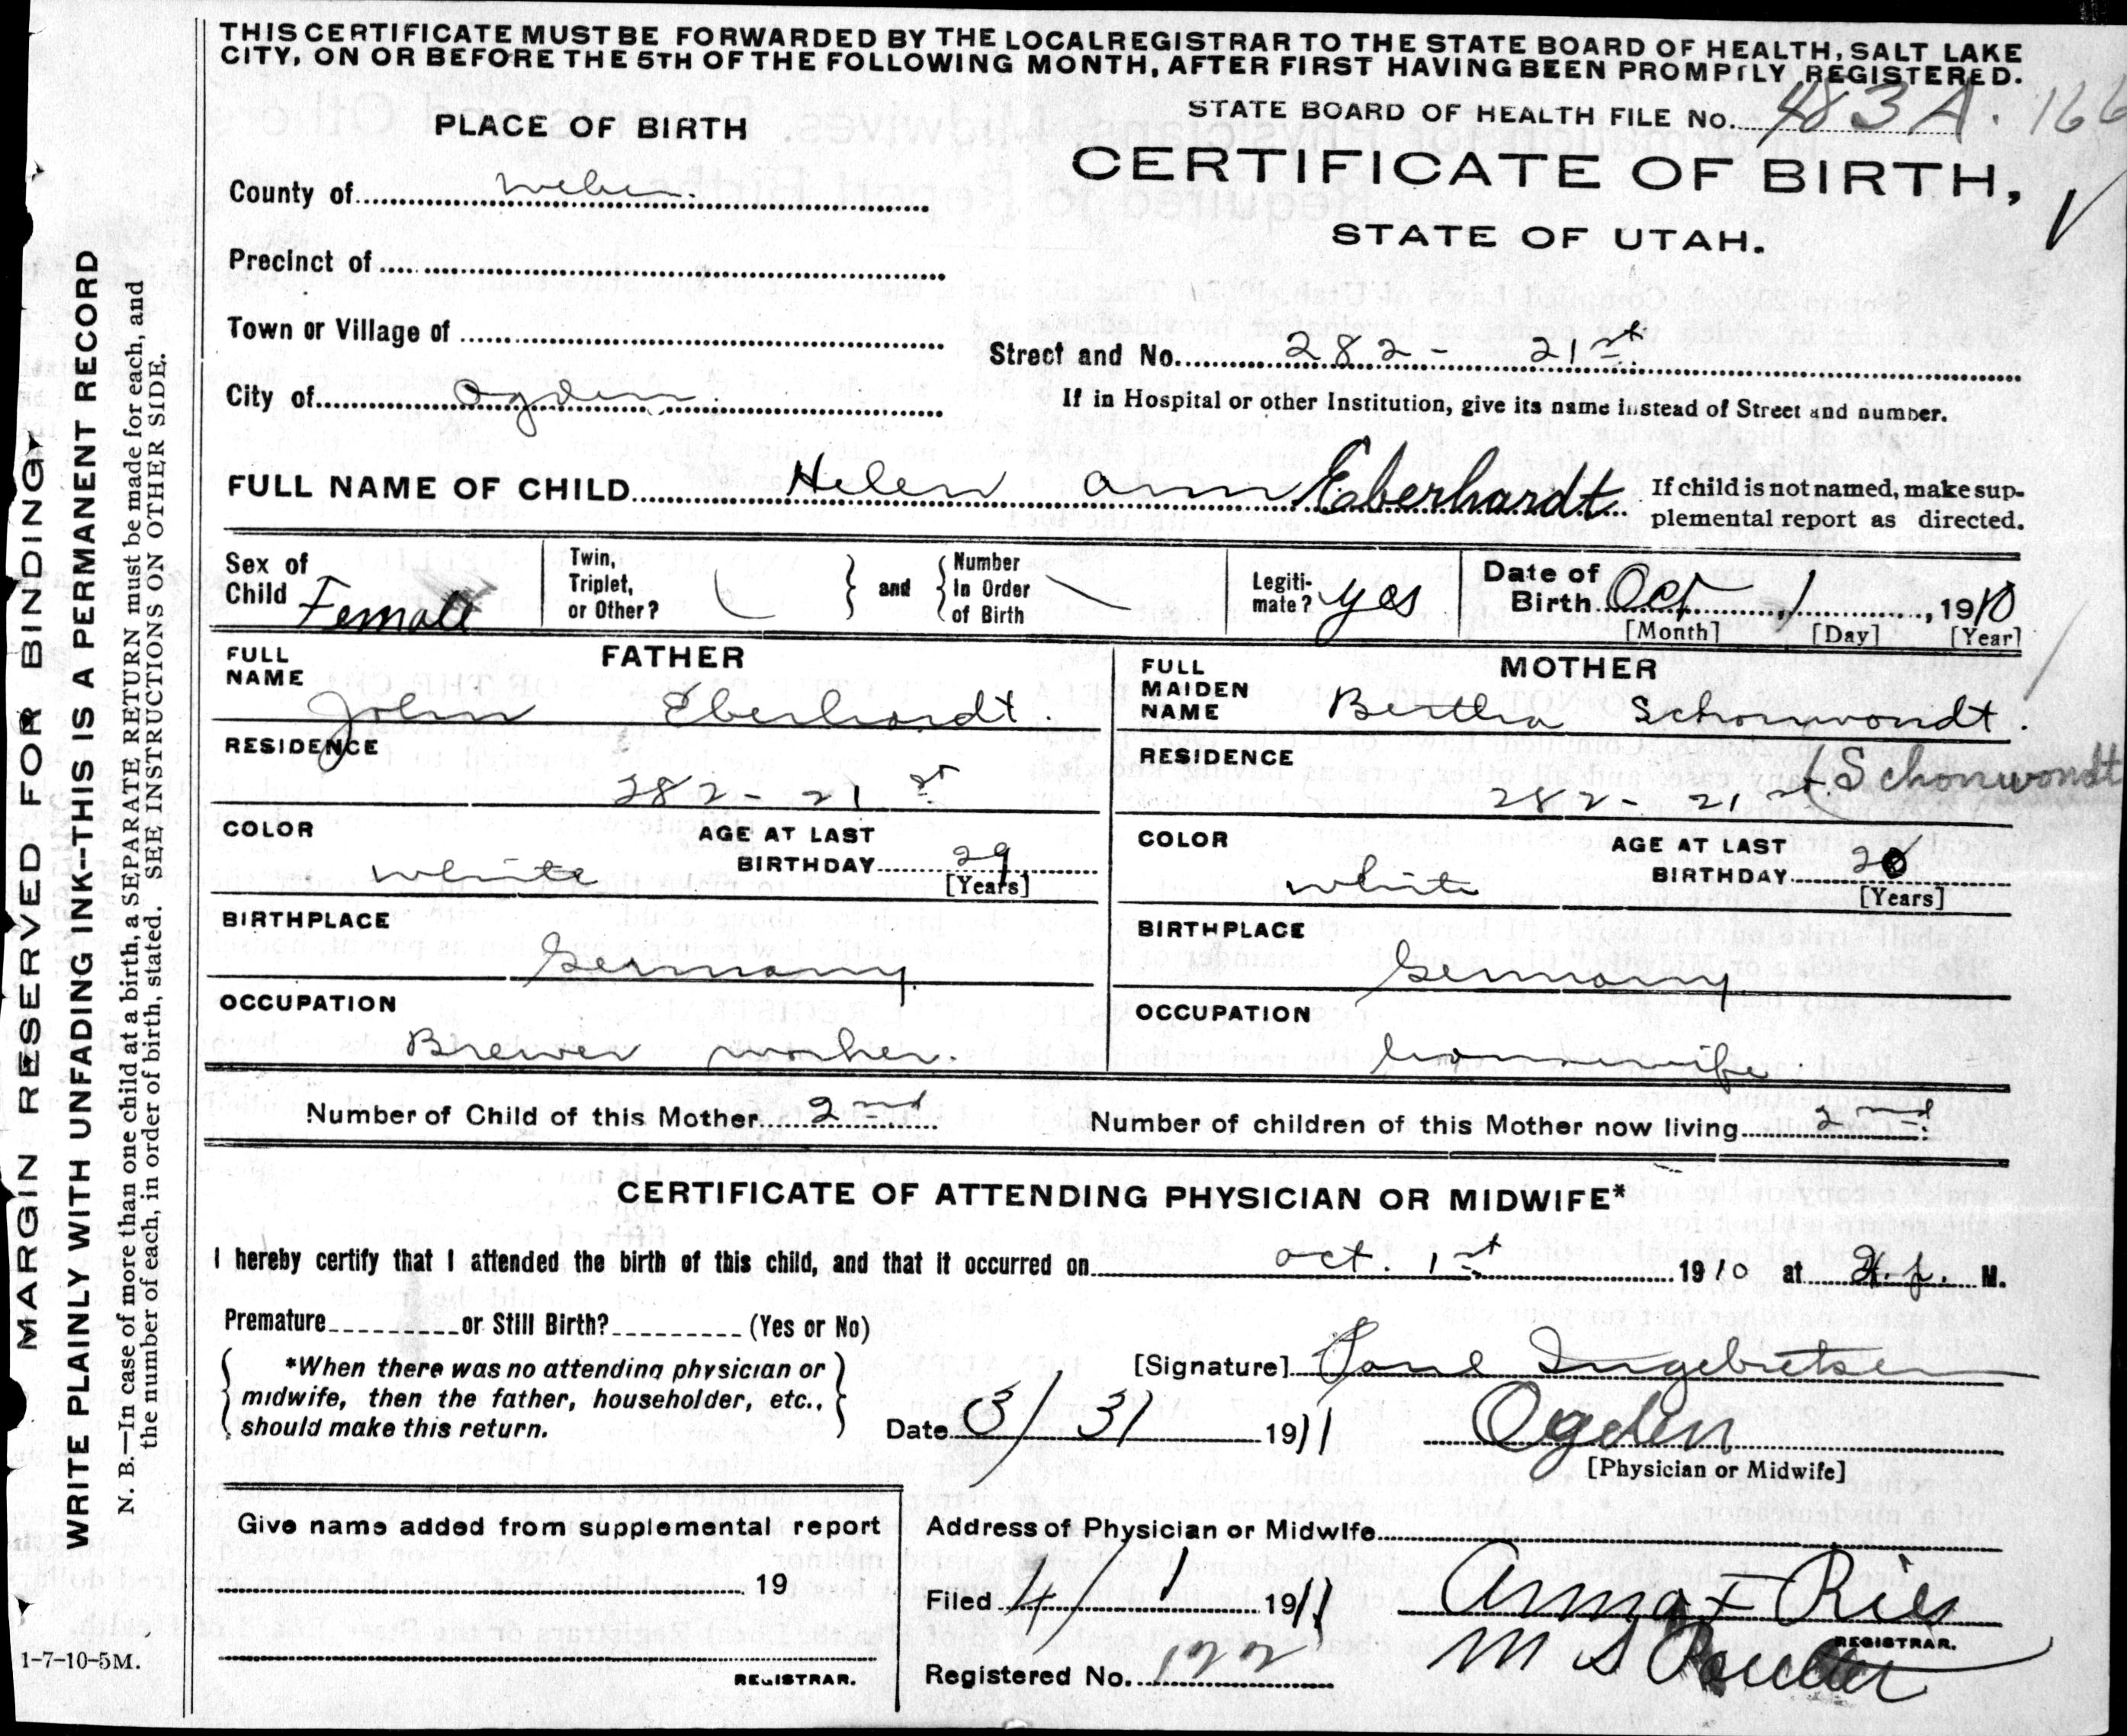 THIS CERTIFICATE MUST BE FORWARDED BY THE LOCAL REGISTRAR TO THE STATE BOARD OF HEALTH, SALT LAKE
CITY, ON OR BEFORE THE 5TH OF THE FOLLOWING MONTH, AFTER FIRST HAVING BEEN PROMPTLY REGISTERED.
STATE BOARD OF HEALTH FILE No. 483 A. 166
PLACE OF BIRTH
CERTIFICATE OF BIRTH,
STATE OF UTAH.
County of Weber
Precinct of
Town or Village of
Street and No. 282 - 21st
City of Ogden
If in Hospital or other Institution, give its name instead of Street and number.
FULL NAME OF CHILD Helen Ann Eberhardt
If child is not named, make sup-
plemental report as directed.
Sex of Child Female
Twin, Triplet, or Other?
and
Number In Order of Birth
Legiti-mate? yes
Date of Birth Oct 1, 1910
[Month] [Day] [Year]
FATHER
FULL NAME John Eberhardt.
RESIDENCE 282 - 21st
COLOR white
AGE AT LAST BIRTHDAY 29
[Years]
BIRTHPLACE Germany
OCCUPATION Brewer worker.
MOTHER
FULL MAIDEN NAME Bertha Schonwondt.
(Schonwondt
RESIDENCE 282 - 21st
COLOR white
AGE AT LAST BIRTHDAY
[Years]
BIRTHPLACE Germany
OCCUPATION housewife
Number of Child of this Mother 2nd
Number of children of this Mother now living 2nd
CERTIFICATE OF ATTENDING PHYSICIAN OR MIDWIFE*
I hereby certify that I attended the birth of this child, and that it occurred on oct. 1st 1910 at M.
Premature or Still Birth? (Yes or No)
*When there was no attending physician or
midwife, then the father, householder, etc.,
should make this return.
[Signature] Ingebretsen
Date 3/31 1911
Ogden
[Physician or Midwife]
Give name added from supplemental report
19
REGISTRAR.
Address of Physician or Midwife
Filed 4/1 1911
Anna F Ries
REGISTRAR.
M S Poulter
Registered No. 122
MARGIN RESERVED FOR BINDING
WRITE PLAINLY WITH UNFADING INK--THIS IS A PERMANENT RECORD
N. B.—In case of more than one child at a birth, a SEPARATE RETURN must be made for each, and
the number of each, in order of birth, stated. SEE INSTRUCTIONS ON OTHER SIDE.
1-7-10-5M.